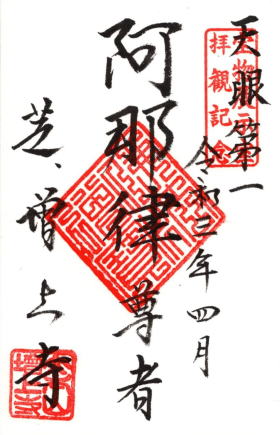 天眼第一
拝観記念
令和三年四月
阿那律尊者
芝、増上寺